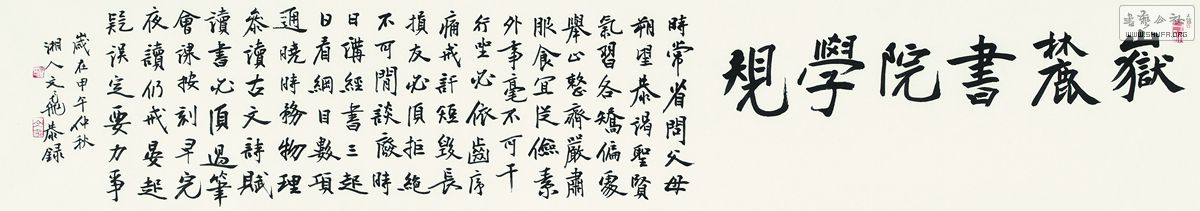 嶽麓書院學規
時常省問父母
朔望恭謁聖賢
氣習各矯偏處
舉止整齊嚴肅
服食宜從儉素
外事毫不可干
行坐必依齒序
痛戒訐短毀長
損友必須拒絕
不可閒談廢時
日講經書三起
日看綱目數項
通曉時務物理
參讀古文詩賦
讀書必須過筆
會課按刻早完
夜讀仍戒晏起
疑誤定要力爭
歲在甲午仲秋
湘人文飛恭錄
书艺公社
WWW.SHUFA.ORG